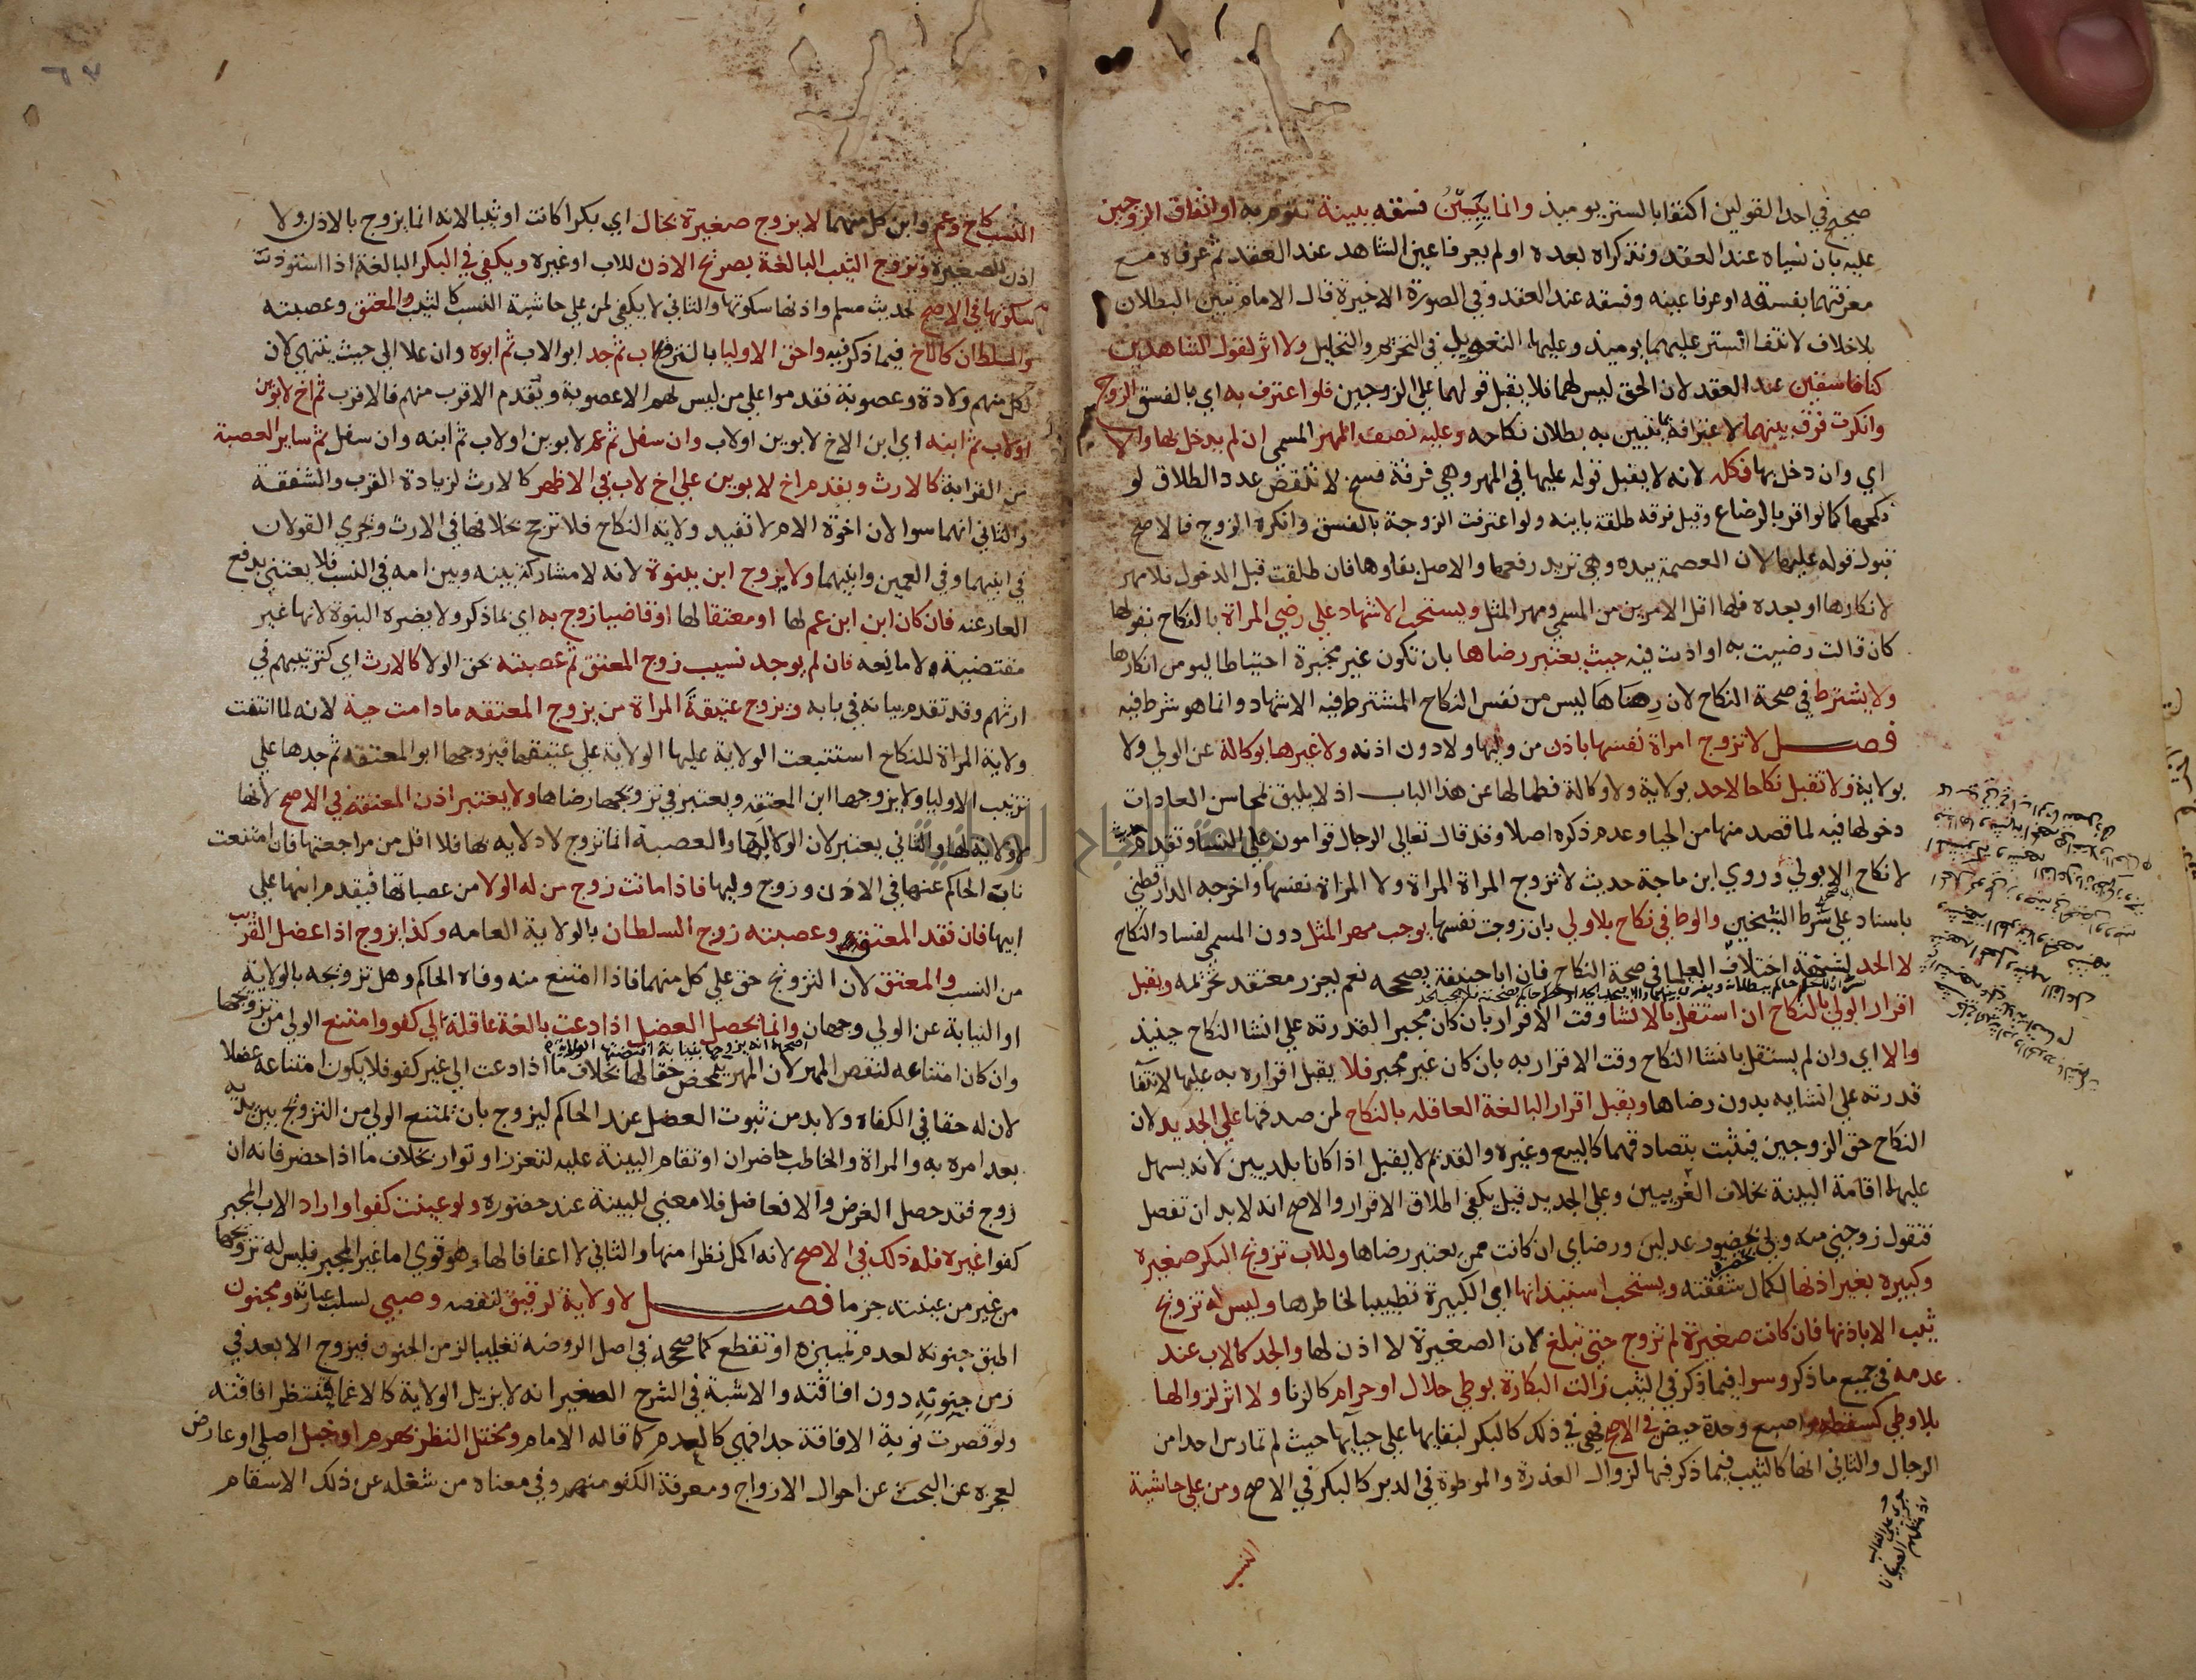 صحيح في احد القولين اكتفا بالستر يوميذ وانما يتبين فسقه ببينة تقوم به او اتفاق الزوجين
عليه بان نسياه عند العقد وتذكراه بعده او لم يعرفا عين الشاهد عند العقد ثم عرفاه مع
معرفتهما بفسقه او عرفا عينه وفسقه عند العقد وفي الصورة الاخيرة قال الامام تبين البطلان
بلا خلاف لانتفا الستر عليهما يوميذ وعليهما التعويل في التحريم والتحليل ولا اثر لقول الشاهدين
كنا فاسقين عند العقد لان الحق ليس لهما فلا يقبل قولهما على الزوجين فلو اعترف به اي بالفسق الزوج
وانكرت فرق بينهما لاعترافه بما يتبين به بطلان نكاحه وعليه نصف المهر المسمى ان لم يدخل بها والا
اي وان دخل بها فكله لانه لا يقبل قوله عليها في المهر وهي فرقة فسخ لا تنقض عدد الطلاق لو
نكحها كما لو اقر بالرضاع وقيل فرقة طلقة باينه ولو اعترفت الزوجة بالفسق وانكره الزوج فالاصح
قبول قوله عليها لان العصمة بيده وهي تريد رفعها والاصل بقاوها فان طلقت قبل الدخول فلا مهر
لانكارها او بعده فلها اقل الامرين من المسمى ومهر المثل ويستحب الاشهاد على رضى المراة بالنكاح بقولها
كان قالت رضيت به او اذنت فيه حيث يعتبر رضاها بان تكون غير مجبرة احتياطا ليومن انكارها
ولا يشترط في صحة النكاح لان رضاها ليس من نفس النكاح المشترط فيه الاشهاد وانما هو شرط فيه
فصل لا تزوج امراة نفسها باذن من وليها ولا دون اذنه ولا غيرها بوكالة عن الولي ولا
بولاية ولا تقبل نكاحا لاحد بولاية ولا وكالة فطما لها عن هذا الباب اذ لا يليق بمحاسن العادات
دخولها فيه لما قصد منها من الحيا وعدم ذكره اصلا وقد قال تعالى الرجال قوامون على النسا وتقدم حديث
لا نكاح الا بولي وروي ابن ماجة حديث لا تزوج المراة المراة ولا المراة نفسها واخرجه الدارقطني
باسناد على شرط الشيخين والوطي في نكاح بلا ولي بان زوجت نفسها يوجب مهر المثل دون المسمى لفساد النكاح
لا الحد لشبهة اختلاف العلما في صحة النكاح فان ابا حنيفة يصححه نعم يعزر معتقد تحريمه ويقبل
اقرار الولي بالنكاح ان استقل بالانشا وقت الاقرار بان كان مجبرا لقدرته على انشا النكاح حينيذ
والا اي وان لم يستقل بانشا النكاح وقت الاقرار به بان كان غير مجبر فلا يقبل اقراره به عليها لانتفا
قدرته على انشايه بدون رضاها ويقبل اقرار البالغة العاقله بالنكاح لمن صدقها على الجديد لان
النكاح حق الزوجين فيثبت بتصادقهما كالبيع وغيره والقديم لا يقبل اذا كانا بلديين لانه يسهل
عليهما اقامة البينة بخلاف الغريبين وعلى الجديد قيل يكفي اطلاق الاقرار والاصح انه لا بد ان تفصل
فتقول زوجني منه وليي بحضور عدلين ورضاي ان كانت ممن يعتبر رضاها وللاب تزويج البكر صغيرة
وكبيرة بغير اذنها لكمال شفقته ويستحب استيذانها اي الكبيرة تطييبا لخاطرها وليس له تزويج
ثيب الا باذنها فان كانت صغيرة لم تزوج حتى تبلغ لان الصغيرة لا اذن لها والجد كالاب عند
عدمه في جميع ما ذكر وسوا فيما ذكر في الثيب زالت البكارة بوطي حلال او حرام كالزنا ولا اثر لزوالها
بلا وطي كسقطة واصبع وحدة حيض في الاصح فهي في ذلك كالبكر لبقايها على حيايها حيث لم تمارس احدا من
الرجال والثاني انها كالثيب فيما ذكر فيها لزوال العذرة والموطوة في الدبر كالبكر في الاصح ومن على حاشية
النسب
النسب كاخ وعم وابن كل منهما لا يزوج صغيرة بحال اي بكرا كانت او ثيبا لانه انما يزوج بالاذن ولا
اذن للصغيرة وتزوج الثيب البالغة بصريح الاذن للاب او غيره ويكفي في البكر البالغة اذا استوذنت
سكوتها في الاصح لحديث مسلم واذنها سكوتها والثاني لا يكفي لمن على حاشية النسب كالثيب والمعتق وعصبته
والسلطان كالاخ فيما ذكر فيه واحق الاوليا بالتزويج اب ثم جد ابو الاب ثم ابوه وان علا الى حيث ينتهي لان
لكل منهم ولادة وعصوبة فقدموا على من ليس لهم الا عصوبة ويقدم الاقرب منهم فالاقرب ثم اخ لابوين
او لاب ثم ابنه اي ابن الاخ لابوين او لاب وان سفل ثم عم لابوين او لاب ثم ابنه وان سفل ثم ساير العصبة
من القرابة كالارث ويقدم اخ لابوين على اخ لاب في الاظهر كالارث لزيادة القرب والشفقة
والثاني انهما سوا لان اخوة الام لا تفيد ولاية النكاح فلا ترجح بخلافها في الارث ويجري القولان
في ابنيهما وفي العمين وابنيهما ولا يزوج ابن ببنوة لانه لا مشاركة بينه وبين امه في النسب فلا يعتني بدفع
العار عنه فان كان ابن ابن عم لها او معتقا لها او قاضيا زوج به اي بما ذكر ولا يضره البنوة لانها غير
مقتضية ولا مانعه فان لم يوجد نسيب زوج المعتق ثم عصبته بحق الولا كالارث اي كترتيبهم في
ارثهم وقد تقدم بيانه في بابه ويزوج عتيقة المراة من يزوج المعتقه ما دامت حية لانه لما انتفت
ولاية المراة للنكاح استتبعت الولاية عليها الولاية على عتيقتها فيزوجها ابو المعتقه ثم جدها على
ترتيب الاوليا ولا يزوجها ابن المعتقه ويعتبر في تزويجها رضاها ولا يعتبر اذن المعتقة في الاصح لانها
لا ولاية لها والثاني يعتبر لان الولا لها والعصبة انما تزوج لادلايه بها فلا اقل من مراجعتها فان امتنعت
ناب الحاكم عنها في الاذن وزوج وليها فاذا ماتت زوج من له الولا من عصباتها فيقدم ابنها على
ابيها فان فقد المعتق وعصبته زوج السلطان بالولاية العامه وكذا يزوج اذا عضل القريب
من النسب والمعتق لان التزويج حق على كل منهما فاذا امتنع منه وفاه الحاكم وهل تزويجه بالولاية
او النيابة عن الولي وجهان وانما يحصل العضل اذا دعت بالغة عاقلة الى كفو وامتنع الولي من تزويجها
وان كان امتناعه لنقص المهر لان المهر يتمحض حقا لها بخلاف ما اذا دعت الى غير كفو فلا يكون امتناعه عضلا
لان له حقا في الكفاه ولا بد من ثبوت العضل عند الحاكم ليزوج بان يمتنع الولي من التزويج بين يديه
بعد امره به والمراة والخاطب حاضران او تقام البينة عليه لتعزز او توار بخلاف ما اذا حضر فانه ان
زوج فقد حصل الغرض والا فعاضل فلا معنى للبينة عند حضوره ولو عينت كفوا واراد الاب المجبر
كفوا غيره فله ذلك في الاصح لانه اكمل نظرا منها والثاني لا اعفافا لها وهو قوي اما غير المجبر فليس له تزويجها
من غير من عينته جزما فصل لا ولاية لرقيق لنقصه وصبي لسلب عبارته ومجنون
اطبق جنونه لعدم تمييزه او تقطع كما صححه في اصل الروضه تغليبا لزمن الجنون فيزوج الابعد في
زمن جنونه دون افاقته والاشبه في الشرح الصغير انه لا يزيل الولاية كالاغما فتنتظر افاقته
ولو قصرت نوبة الافاقة جدا فهي كالعدم كما قاله الامام ومختل النظر بهرم او خبل اصلي او عارض
لعجزه عن البحث عن احوال الازواج ومعرفة الكفو منهم وفي معناه من شغله عن ذلك الاسقام